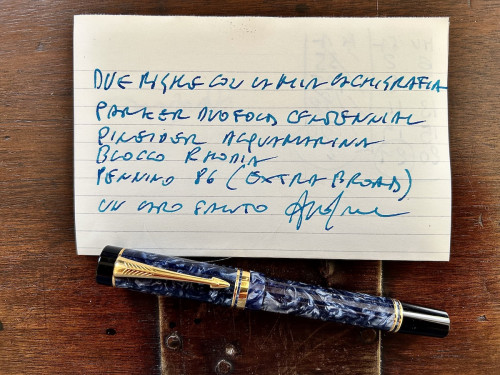 DUE RIGHE CON LA MIA CALLIGRAFIA
PARKER DUOFOLD CENTENNIAL
PINEIDER ACQUAMARINA
BLOCCO RHODIA
PENNINO 86 (EXTRA BROAD)
UN CARO SALUTO